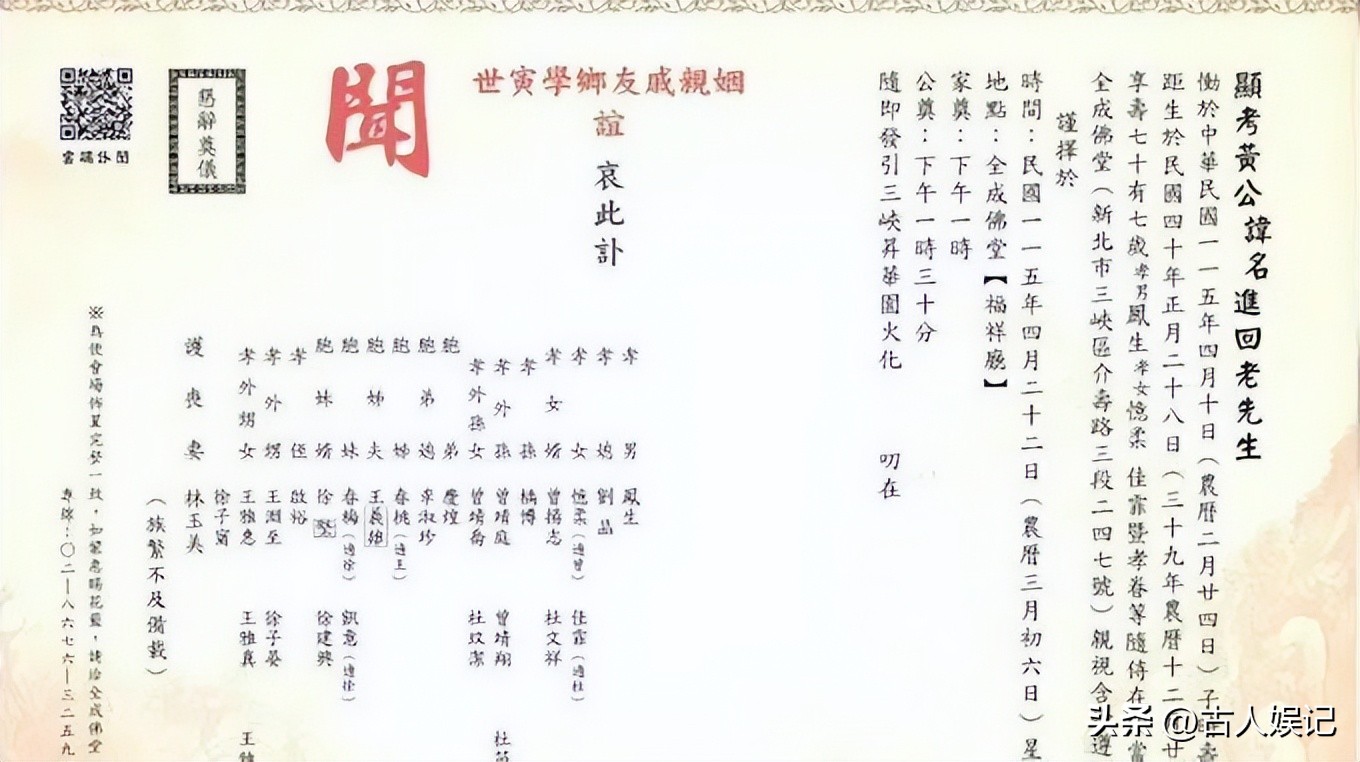 顯考黃公諱名進回老先生
慟於中華民國一一五年四月十日（農曆二月廿四日）子時壽
距生於民國四十年正月二十八日（三十九年農曆十二月廿
享壽七十有七歲孝男鳳生孝女憶柔 佳霏暨孝眷等隨侍在 當
全成佛堂（新北市三峽區介壽路三段二四七號）親視含 遵
謹擇於
時間：民國一一五年四月二十二日（農曆三月初六日）星
地點：全成佛堂【福祥廳】
家奠：下午一時
公奠：下午一時三十分
隨即發引三峽昇華園火化 叨在
世寅學鄉友戚親姻
誼 哀此訃
聞
孝男 鳳生
孝媳 劉晶
孝女 憶柔（適曾） 佳霏（適杜）
孝女婿 曾揚志 杜文祥
孝孫 橋博
孝外孫 曾靖庭 曾靖翔 杜
孝外孫女 曾靖喬 杜玟潔
胞弟 慶煌
胞弟媳 李淑珍
胞姊 春桃（適王）
胞姊夫 王義雄
胞妹 春梅（適徐） 釩意（適徐）
胞妹婿 徐 徐建興
孝侄 啟裕
孝外甥 王淵至 徐子晏
孝外甥女 王雅惠 王雅真 王
徐子甯
護喪妻 林玉美
（族繁不及備載）
懇辭奠儀
雲端休閒
※為使會場佈置完整一致，如蒙惠賜花籃，請洽全成佛堂
專線：〇二—八六七六—三二五九
头条 @古人娱记